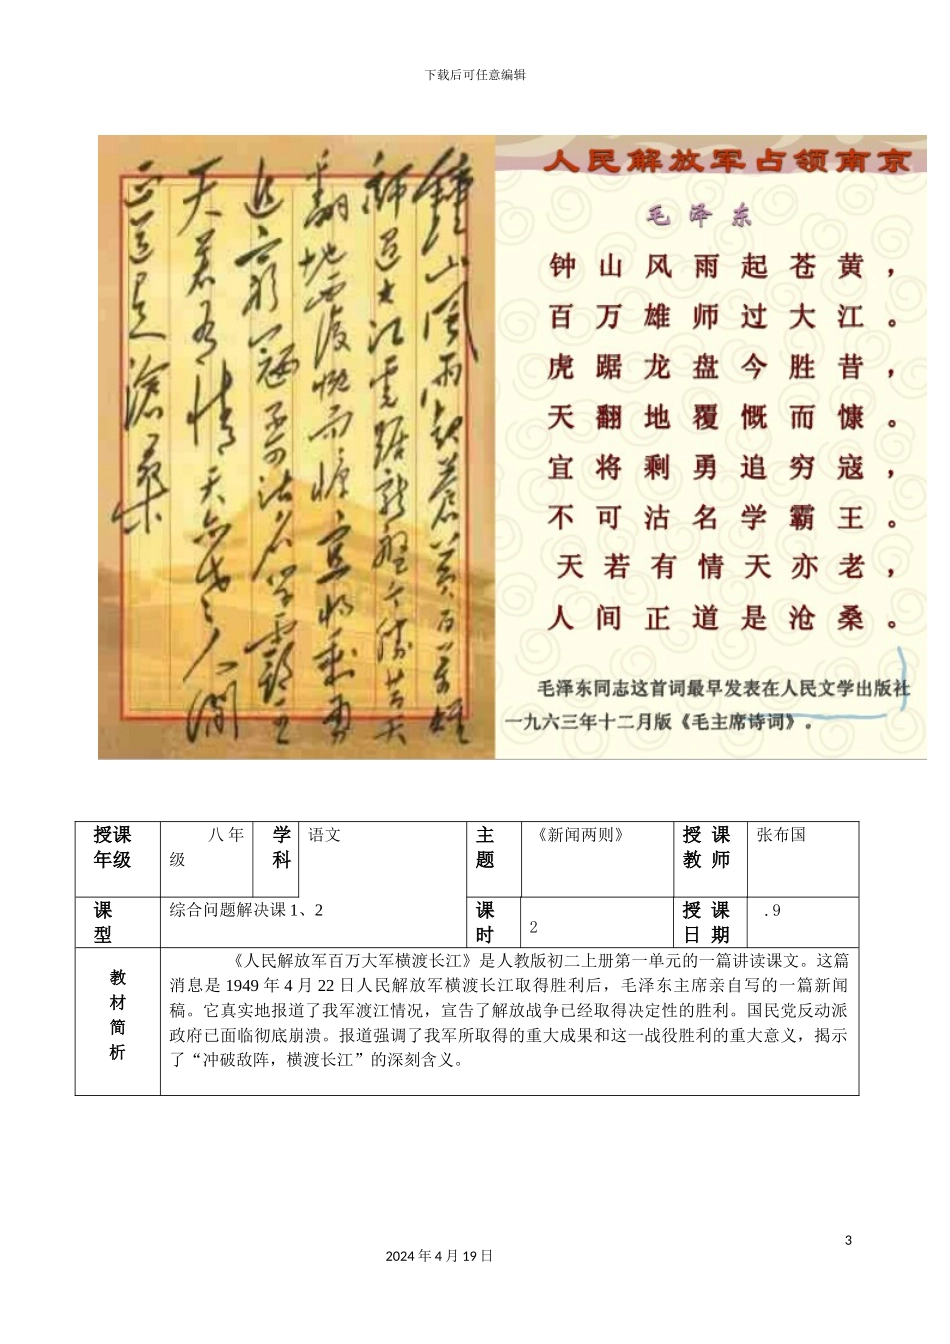 下载后可任意编辑
鍾山風雨起蒼黄百萬雄
師过大江虎踞龙盤今勝昔天
翻地覆慨而慷宜将剩勇
追穷寇不可沽名学霸王
天若有情天亦老人间
正道是滄桑
人民解放军占领南京
毛泽东
钟山风雨起苍黄，
百万雄师过大江。
虎踞龙盘今胜昔，
天翻地覆慨而慷。
宜将剩勇追穷寇，
不可沽名学霸王。
天若有情天亦老，
人间正道是沧桑。
毛泽东同志这首词最早发表在人民文学出版社
一九六三年十二月版《毛主席诗词》。
授课 八年 学 语文 主 《新闻两则》 授课 张布国
年级 级 科 题 教师
课 综合问题解决课 1、2 课 2 授课 .9
型 时 日期
教
材
简
析
《人民解放军百万大军横渡长江》是人教版初二上册第一单元的一篇讲读课文。这篇
消息是 1949 年 4 月 22 日人民解放军横渡长江取得胜利后，毛泽东主席亲自写的一篇新闻
稿。它真实地报道了我军渡江情况，宣告了解放战争已经取得决定性的胜利。国民党反动派
政府已面临彻底崩溃。报道强调了我军所取得的重大成果和这一战役胜利的重大意义，揭示
了“冲破敌阵，横渡长江”的深刻含义。
3
2024 年 4 月 19 日